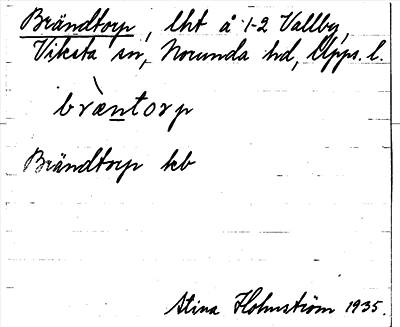 Brändtorp, lht å 1-2 Vallby,
Viksta sn, Norunda hd, Upps. l.
brὲntorp
Brändtorp kb
Stina Holmström 1935.